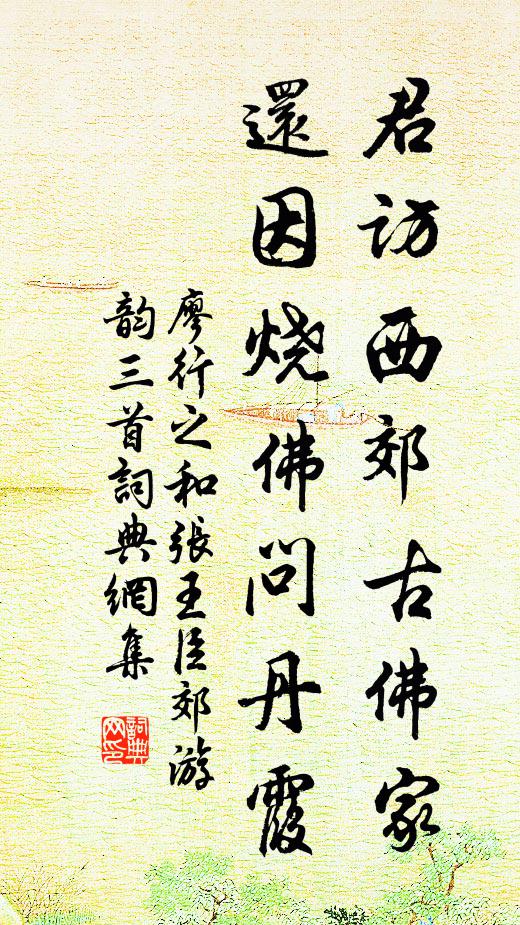 君访西郊古佛家
還因烧佛问丹霞
廖行之和張王臣郊游
韵三首詞典網集
詞典
网印